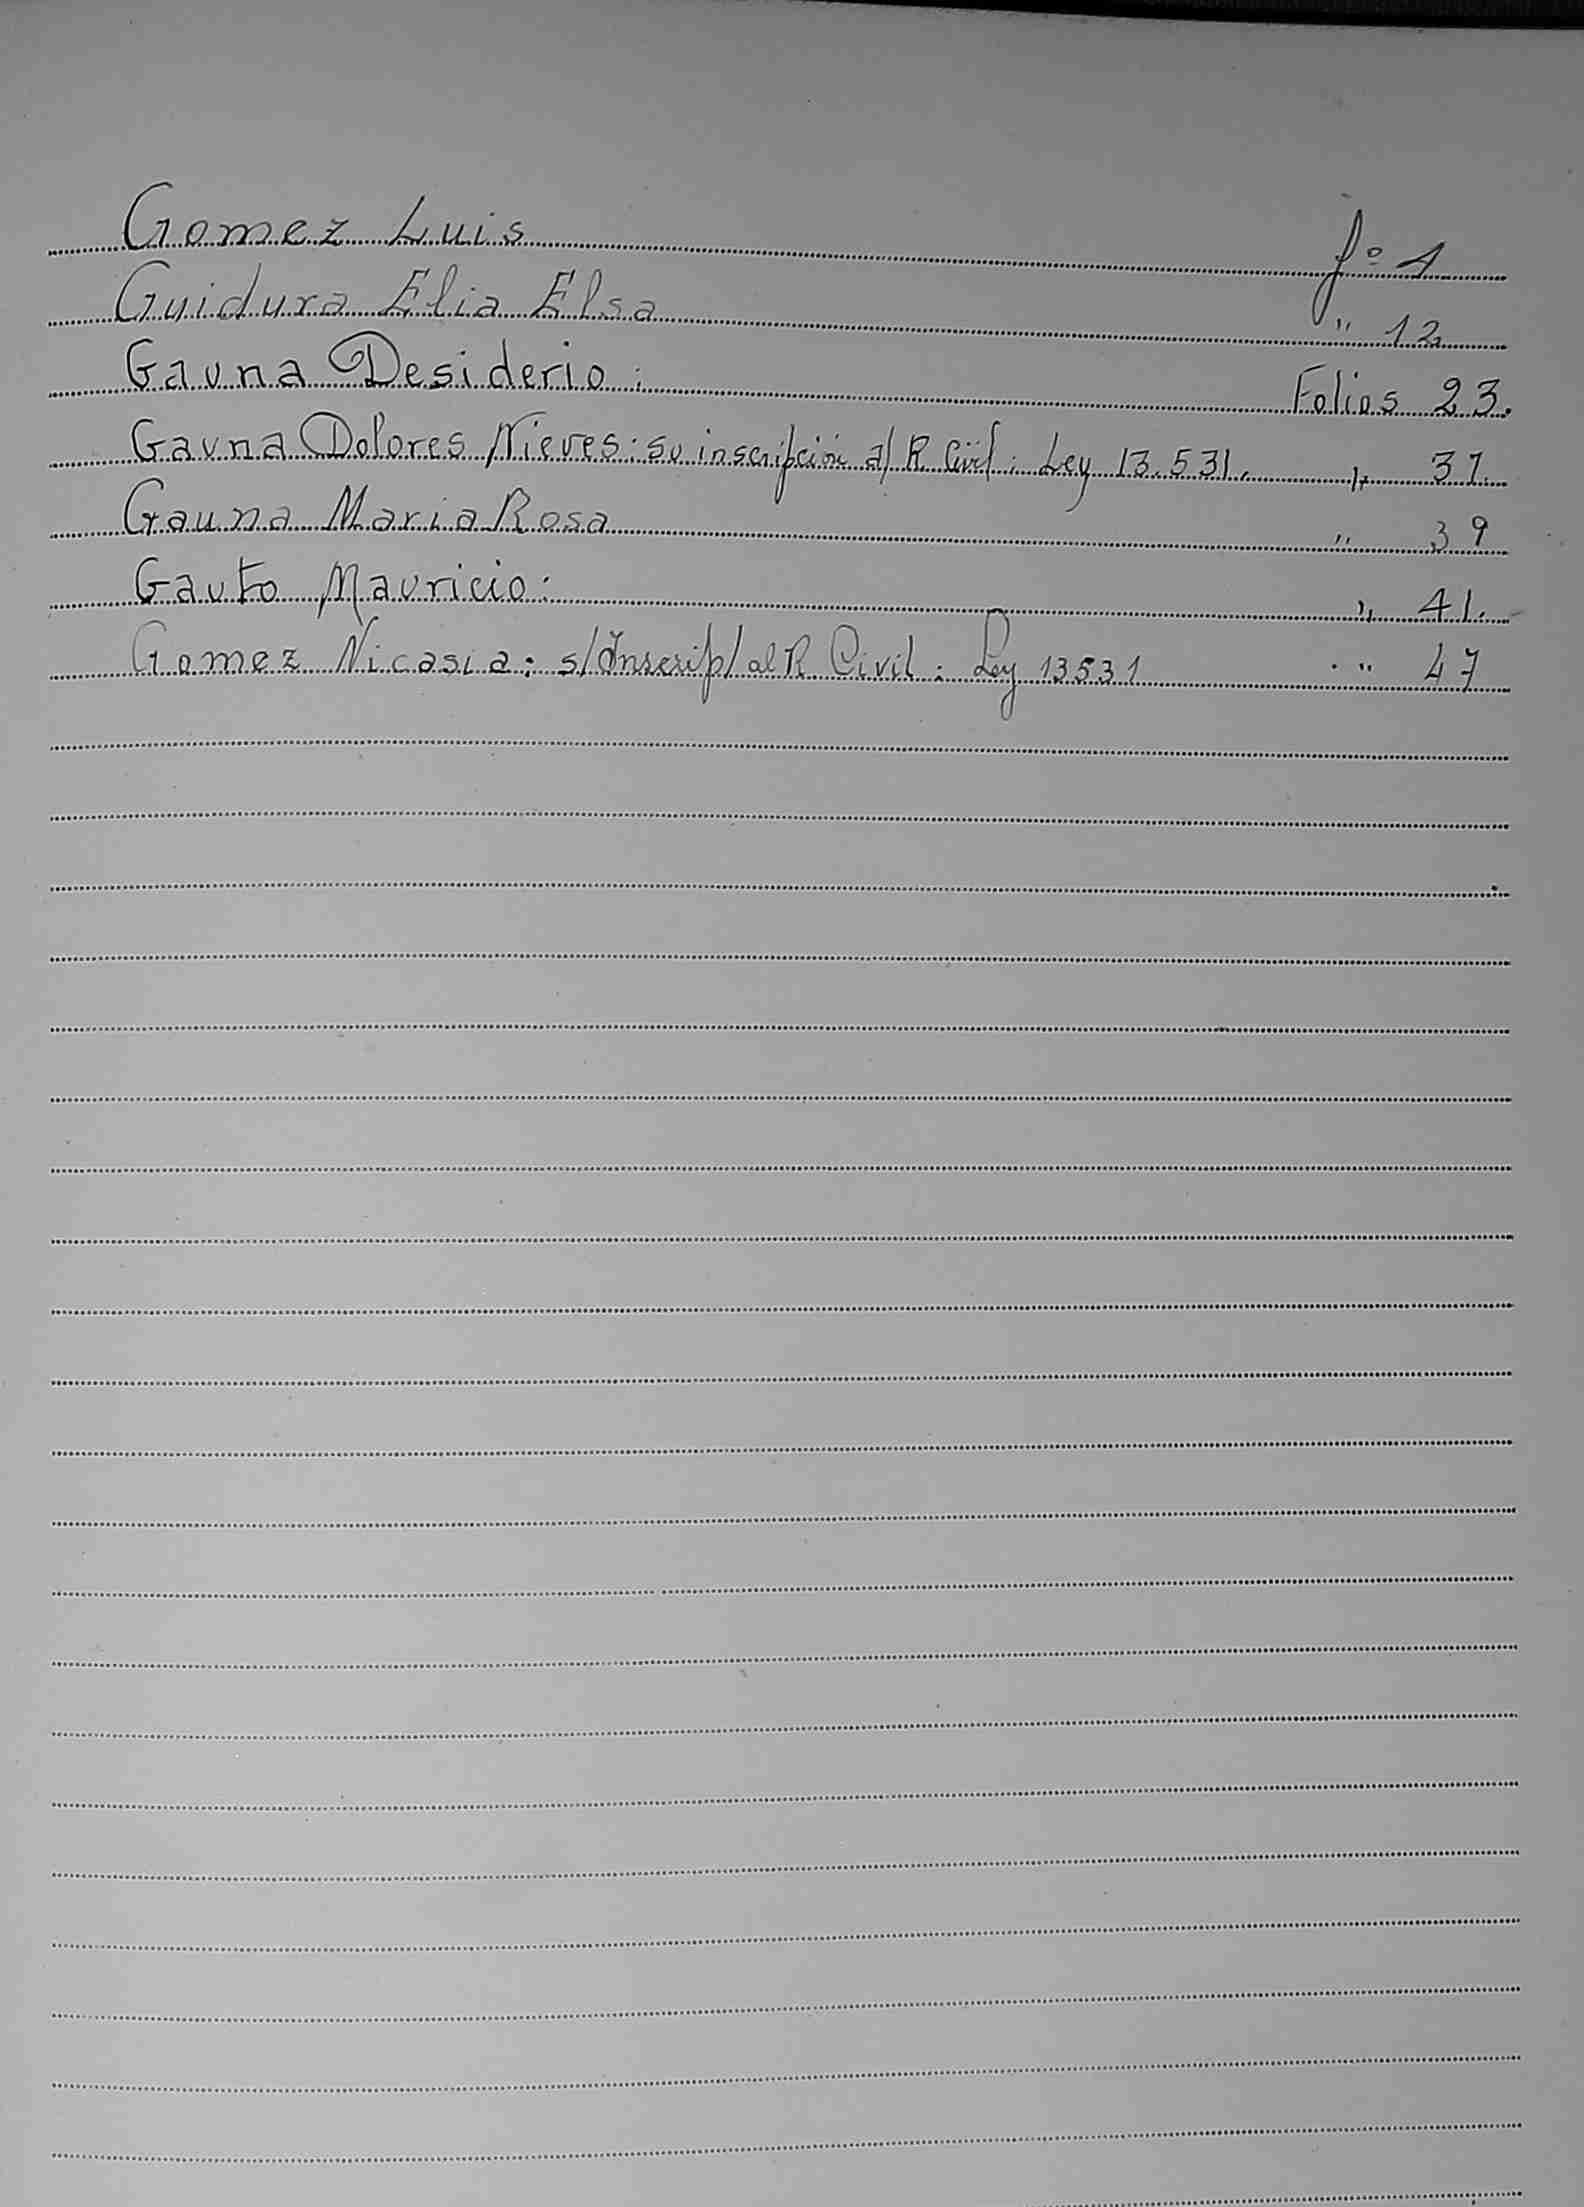 Gomez Luis fº 1
Guidura Elia Elsa " 12
Gauna Desiderio: Folios 23.
Gauna Dolores Nieves: su inscripción al R Civil: Ley 13.531. " 37.
Gauna Maria Rosa " 39
Gauto Mauricio: " 41.
Gomez Nicasia: s/Inscrip/ al R Civil: Ley 13531 " 47